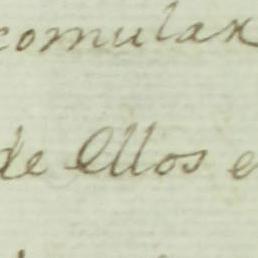 comular
de Ellos e